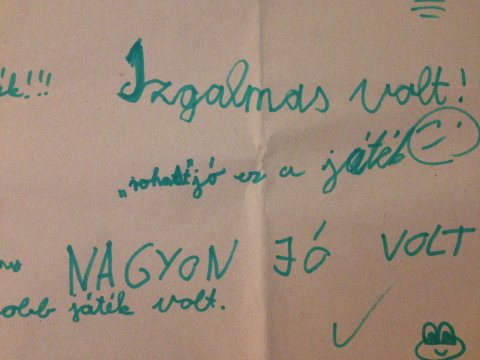 k!!!
Izgalmas volt!
„rohatt” jó ez a játék
NAGYON JÓ VOLT
obb játék volt.